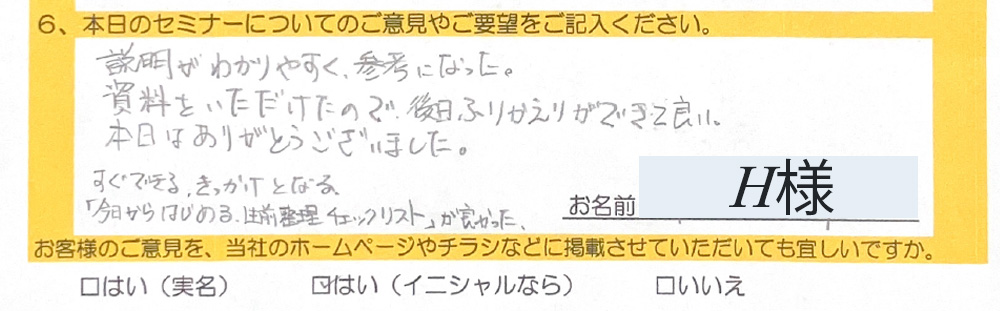 6、本日のセミナーについてのご意見やご要望をご記入ください。
説明がわかりやすく、参考になった。
資料をいただけたので、後日ふりかえりができて良い。
本日はありがとうございました。
すぐできる、きっかけとなる、
「今日からはじめる、生前整理チェックリスト」が良かった、
お名前 H様
お客様のご意見を、当社のホームページやチラシなどに掲載させていただいても宜しいですか。
□はい（実名） ☑はい（イニシャルなら） □いいえ